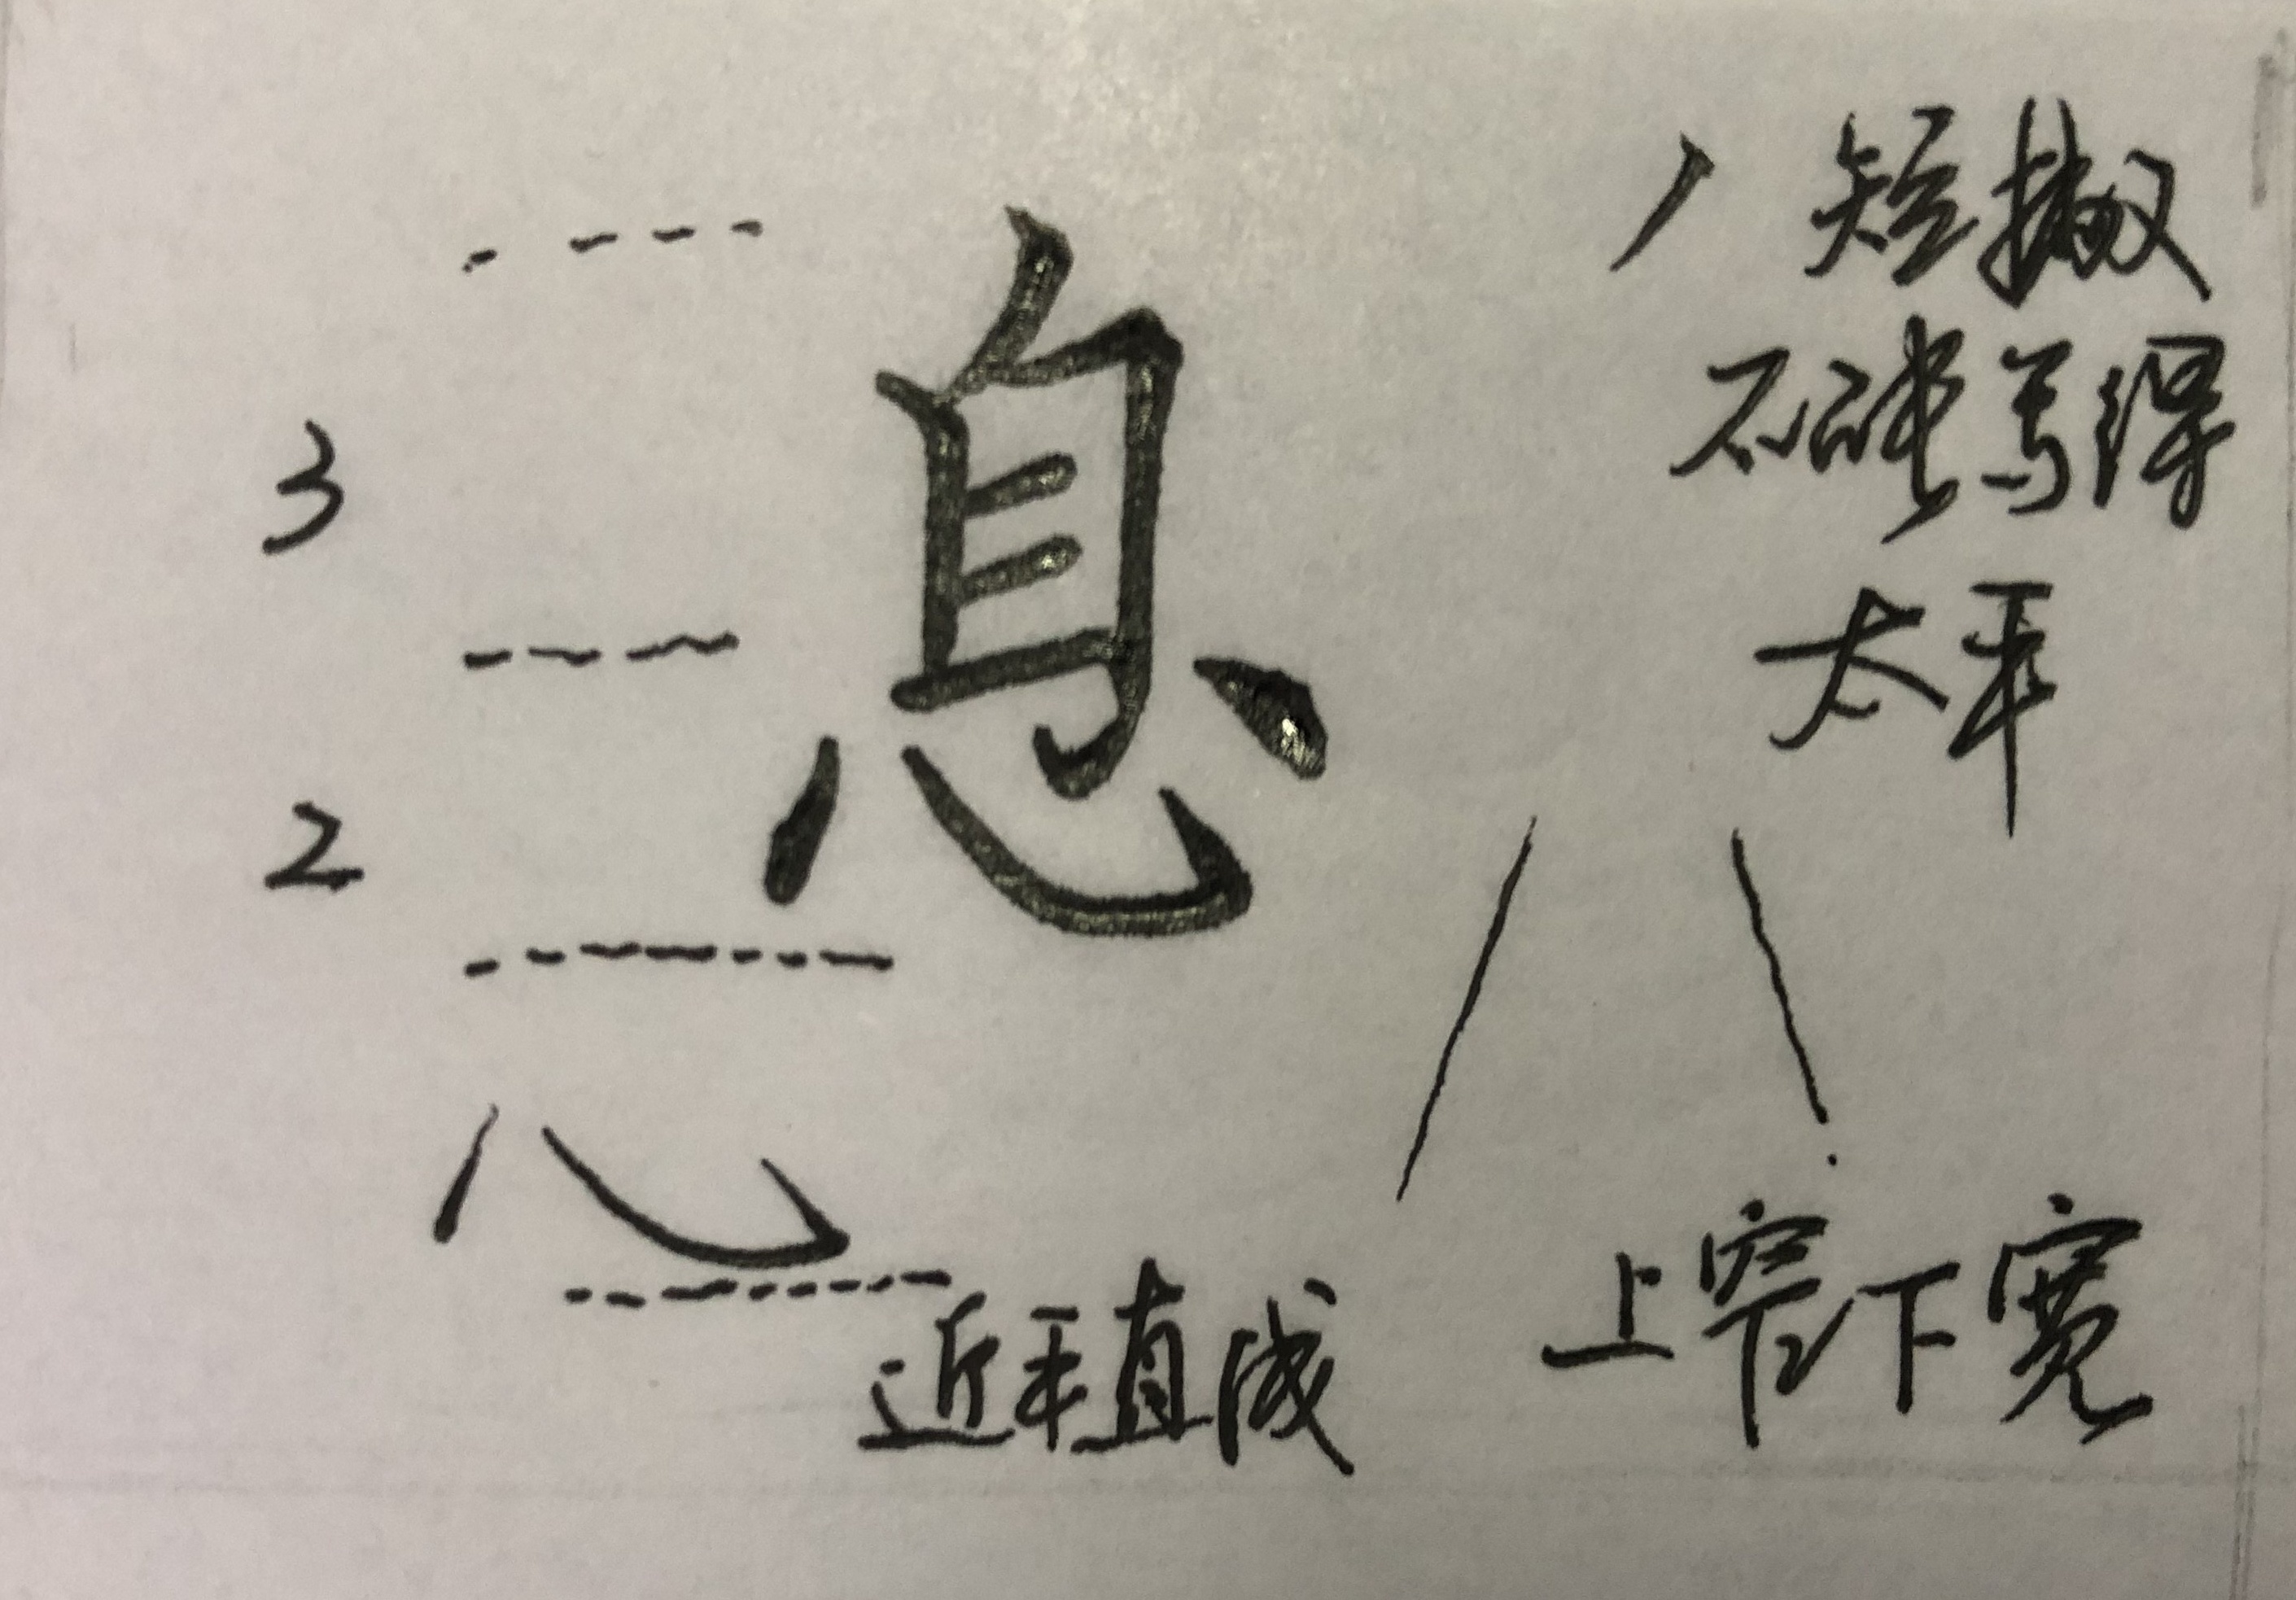 息
丿短撇
不能写得
太平
3
2
心
近乎直线
上窄下宽